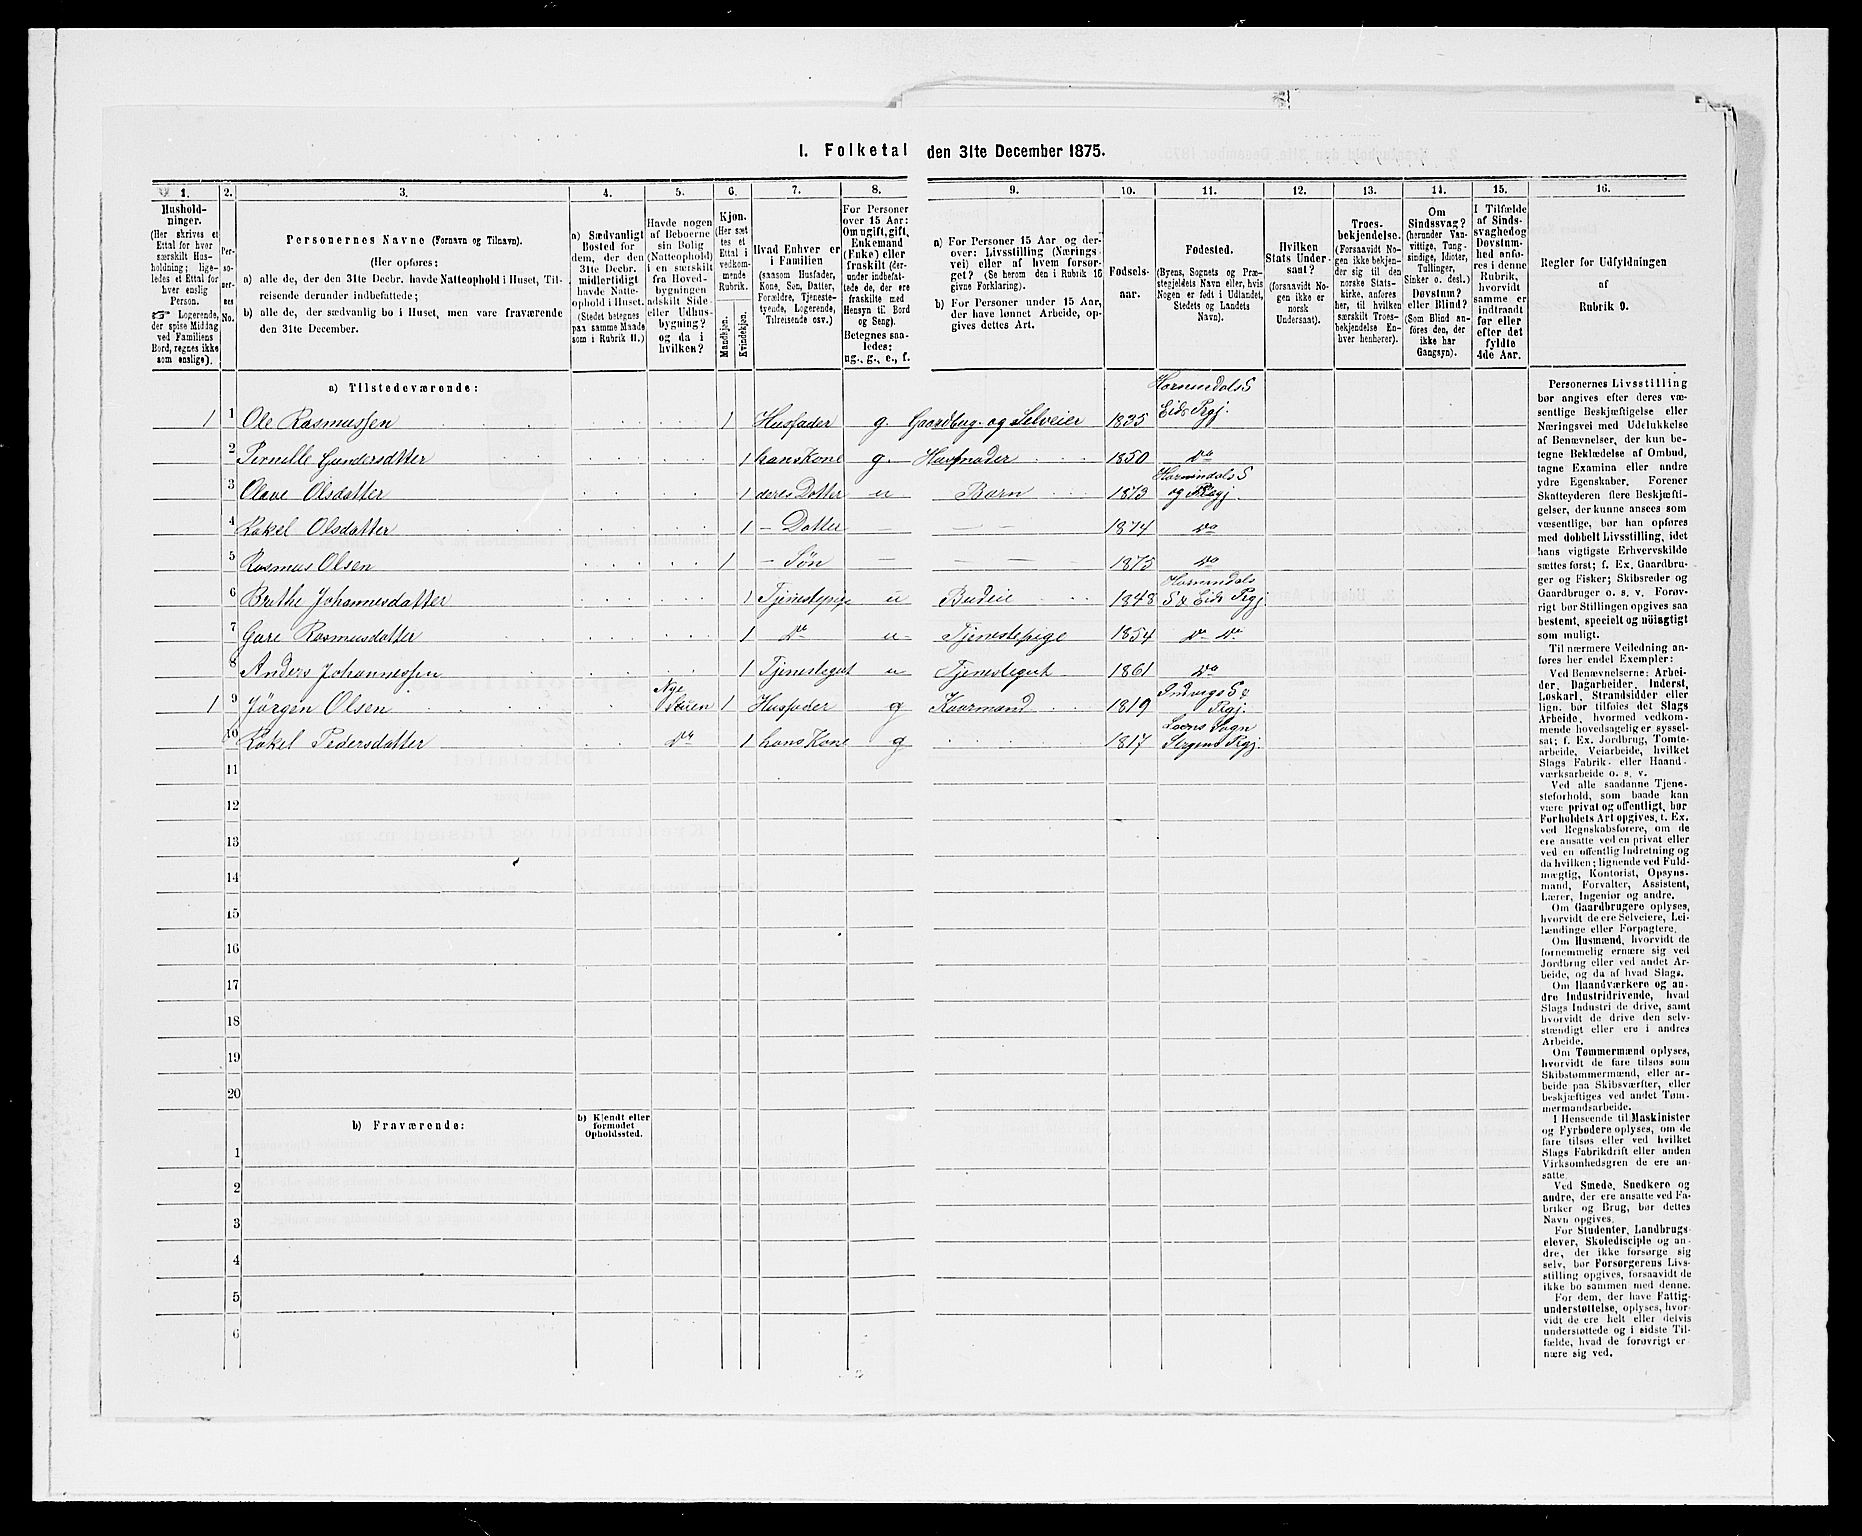 I. Folketal den 31te December 1875.
1. 2. 3. 4. 5. 6. 7. 8. 9. 10. 11. 12. 13. 14. 15. 16.
Hushold-
ninger.
(Her skrives et
Ettal for hver
særskilt Hus-
holdning; lige-
ledes et Ettal for
hver enslig
Person.
☞ Logerende,
der spise Middag
ved Familiens
Bord, regnes ikke
som enslige).
Per-
so-
ner-
nes
No.
Personernes Navne (Fornavn og Tilnavn).
(Her opføres:
a) alle de, der den 31te Decbr. havde Natteophold i Huset, Til-
reisende derunder indbefattede;
b) alle de, der sædvanlig bo i Huset, men vare fraværende
den 31te December.
a) Sædvanligt
Bosted for
dem, der den
31te Decbr.
midlertidigt
havde Natte-
ophold i Huset.
(Stedet betegnes
paa samme Maade
som i Rubrik 11.)
Havde nogen
af Beboerne
sin Bolig
(Natteophold)
i en særskilt
fra Hoved-
bygningen
adskilt Side-
eller Udhus-
bygning?
og da i
hvilken?
Kjøn.
(Her sæt
tes et
Ettal i
vedkom-
mende
Rubrik.
Mandkjøn.
Kvindekjøn.
Hvad Enhver er
i Familien
(saasom Husfader,
Kone, Søn, Datter,
Forældre, Tjeneste-
tyende, Logerende,
Tilreisende osv.)
For Personer
over 15 Aar:
Om ugift, gift,
Enkemand
(Enke) eller
fraskilt (der-
under indbefat-
tede de, der ere
fraskilte med
Hensyn til Bord
og Seng).
Betegnes saa-
ledes:
ug., g., e., f.
a) For Personer 15 Aar og der-
over: Livsstilling (Nærings
vei) eller af hvem forsør-
get? (Se herom den i Rubrik 16
givne Forklaring).
b) For Personer under 15 Aar,
der have lønnet Arbeide, op-
gives dettes Art.
Fødsels-
aar.
Fødested.
(Byens, Sognets og Præ-
stegjeldets Navn eller, hvis
Nogen er født i Udlandet,
Stedets og Landets
Navn).
Hvilken
Stats Under-
saat?
(forsaavidt No-
gen ikke er
norsk
Undersaat).
Troes-
bekjendelse.
(Forsaavidt No-
gen ikke bekjen-
der sig til den
norske Stats-
kirke, anføres
her, til hvilken
særskilt Troes-
bekjendelse En-
hver henhører).
Om
Sindssvag?
(herunder Van-
vittige, Tung-
sindige, Idioter,
Tullinger,
Sinker o. desl.)
Døvstum?
eller Blind?
(Som Blind an-
føres den, der
ikke har
Gangsyn).
I Tilfælde
af Sinds-
svaghed og
Døvstum-
hed anfø-
res i denne
Rubrik,
hvorvidt
samme er
indtraadt
før eller
efter det
fyldte
4de Aar.
Regler for Udfyldningen
af
Rubrik 9.
a) Tilstedeværende:
1 1 Ole Rasmussen 1 Husfader g. Gaardbrug. og Selveier 1835 Hornindals S Eids Prgj.
2 Pernille Gundersdatter 1 hans Kone g. Husmoder 1850 do
3 Olave Olsdatter 1 deres Datter u Barn 1873 Hornindals S og Prgj.
4 Rakel Olsdatter 1 – Datter – – – 1874 do
5 Rasmus Olsen 1 – Søn – – – 1875 do
6 Brithe Johannesdatter 1 Tjenestepige u Budeie 1848 Hornindals S & Eids Prgj
7 Gure Rasmusdatter 1 do u Tjenestepige 1854 do do
8 Anders Johannessen 1 Tjenestegut u Tjenestegut 1861 do
1 9 Jörgen Olsen 1 Husfader g Kaarmand 1819 S & Prgj.
10 Rakel Pedersdatter do 1 hans Kone g 1817 Sogn Prgj.
11
12
13
14
15
16
17
18
19
20
b) Fraværende:
b) Kjendt eller
formodet
Opholdssted.
1
2
3
4
5
6
Personernes Livsstilling
bør angives efter deres væ-
sentlige Beskjæftigelse eller
Næringsvei med Udelukkelse
af Benævnelser, der kun be-
tegne Beklædelse af Ombud,
tagne Examina eller andre
ydre Egenskaber. Forener
Skatteyderen flere Beskjæfti-
gelser, der kunne ansees som
væsentlige, bør han opføres
med dobbelt Livsstilling, idet
hans vigtigste Erhvervskilde
sættes først; f. Ex. Gaardbru-
ger og Fisker; Skibsreder og
Gaardbruger o. s. v. Forøv-
rigt bør Stillingen opgives saa
bestemt, specielt og nöiagtigt
som muligt.
Til nærmere Veiledning an-
føres her endel Exempler:
Ved Benævnelserne: Arbei-
der, Dagarbeider, Inderst,
Løskarl, Strandsidder eller
lign. bør tilføies det Slags
Arbeide, hvormed vedkom-
mende hovedsagelig er syssel-
sat; f. Ex. Jordbrug, Tomte-
arbeide, Veiarbeide, hvilket
Slags Fabrik- eller Haand-
værksarbeide o. s. v.
Ved alle saadanne Tjene-
steforhold, som baade kan
være privat og offentligt, bør
Forholdets Art opgives, t. Ex.
ved Regnskabsførere, om de
ere ansatte ved en privat eller
ved en offentlig Indretning og
da hvilken; lignende ved Fuld-
mægtig, Kontorist, Opsyns-
mand, Forvalter, Assistent,
Lærer, Ingeniør og andre.
Om Gaardbrugere oplyses,
hvorvidt de ere Selveiere, Lei-
lændinge eller Forpagtere.
Om Husmænd, hvorvidt de
fornemmelig ernære sig ved
Jordbrug eller ved andet Ar-
beide, og da af hvad Slags.
Om Haandværkere og an-
dre Industridrivende, hvad
Slags Industri de drive, samt
hvorvidt de drive den selv-
stændigt eller ere i andres
Arbeide.
Om Tømmermænd oplyses,
hvorvidt de fare tilsøs som
Skibstømmermænd, eller ar-
beide paa Skibsværfter, eller
beskjæftiges ved andet Tøm-
mermandsarbeide.
I Henseende til Maskinister
og Fyrbødere oplyses, om de
fare tilsøs eller ved hvilket
Slags Fabrikdrift eller anden
Virksomhedsgren de ere an-
satte.
Ved Smede, Snedkere og
andre, der ere ansatte ved Fa-
briker og Brug, bør dettes
Navn opgives.
For Studenter, Landbrugs-
elever, Skoledisciple og an-
dre, der ikke forsørge sig
selv, bør Forsørgerens Livs-
stilling opgives, forsaavidt de
ikke bo sammen med denne.
For dem, der have Fattig-
understøttelse, oplyses, hvor-
vidt de ere helt eller delvis
understøttede og i sidste Til-
fælde, hvad de forøvrigt er-
nære sig ved.